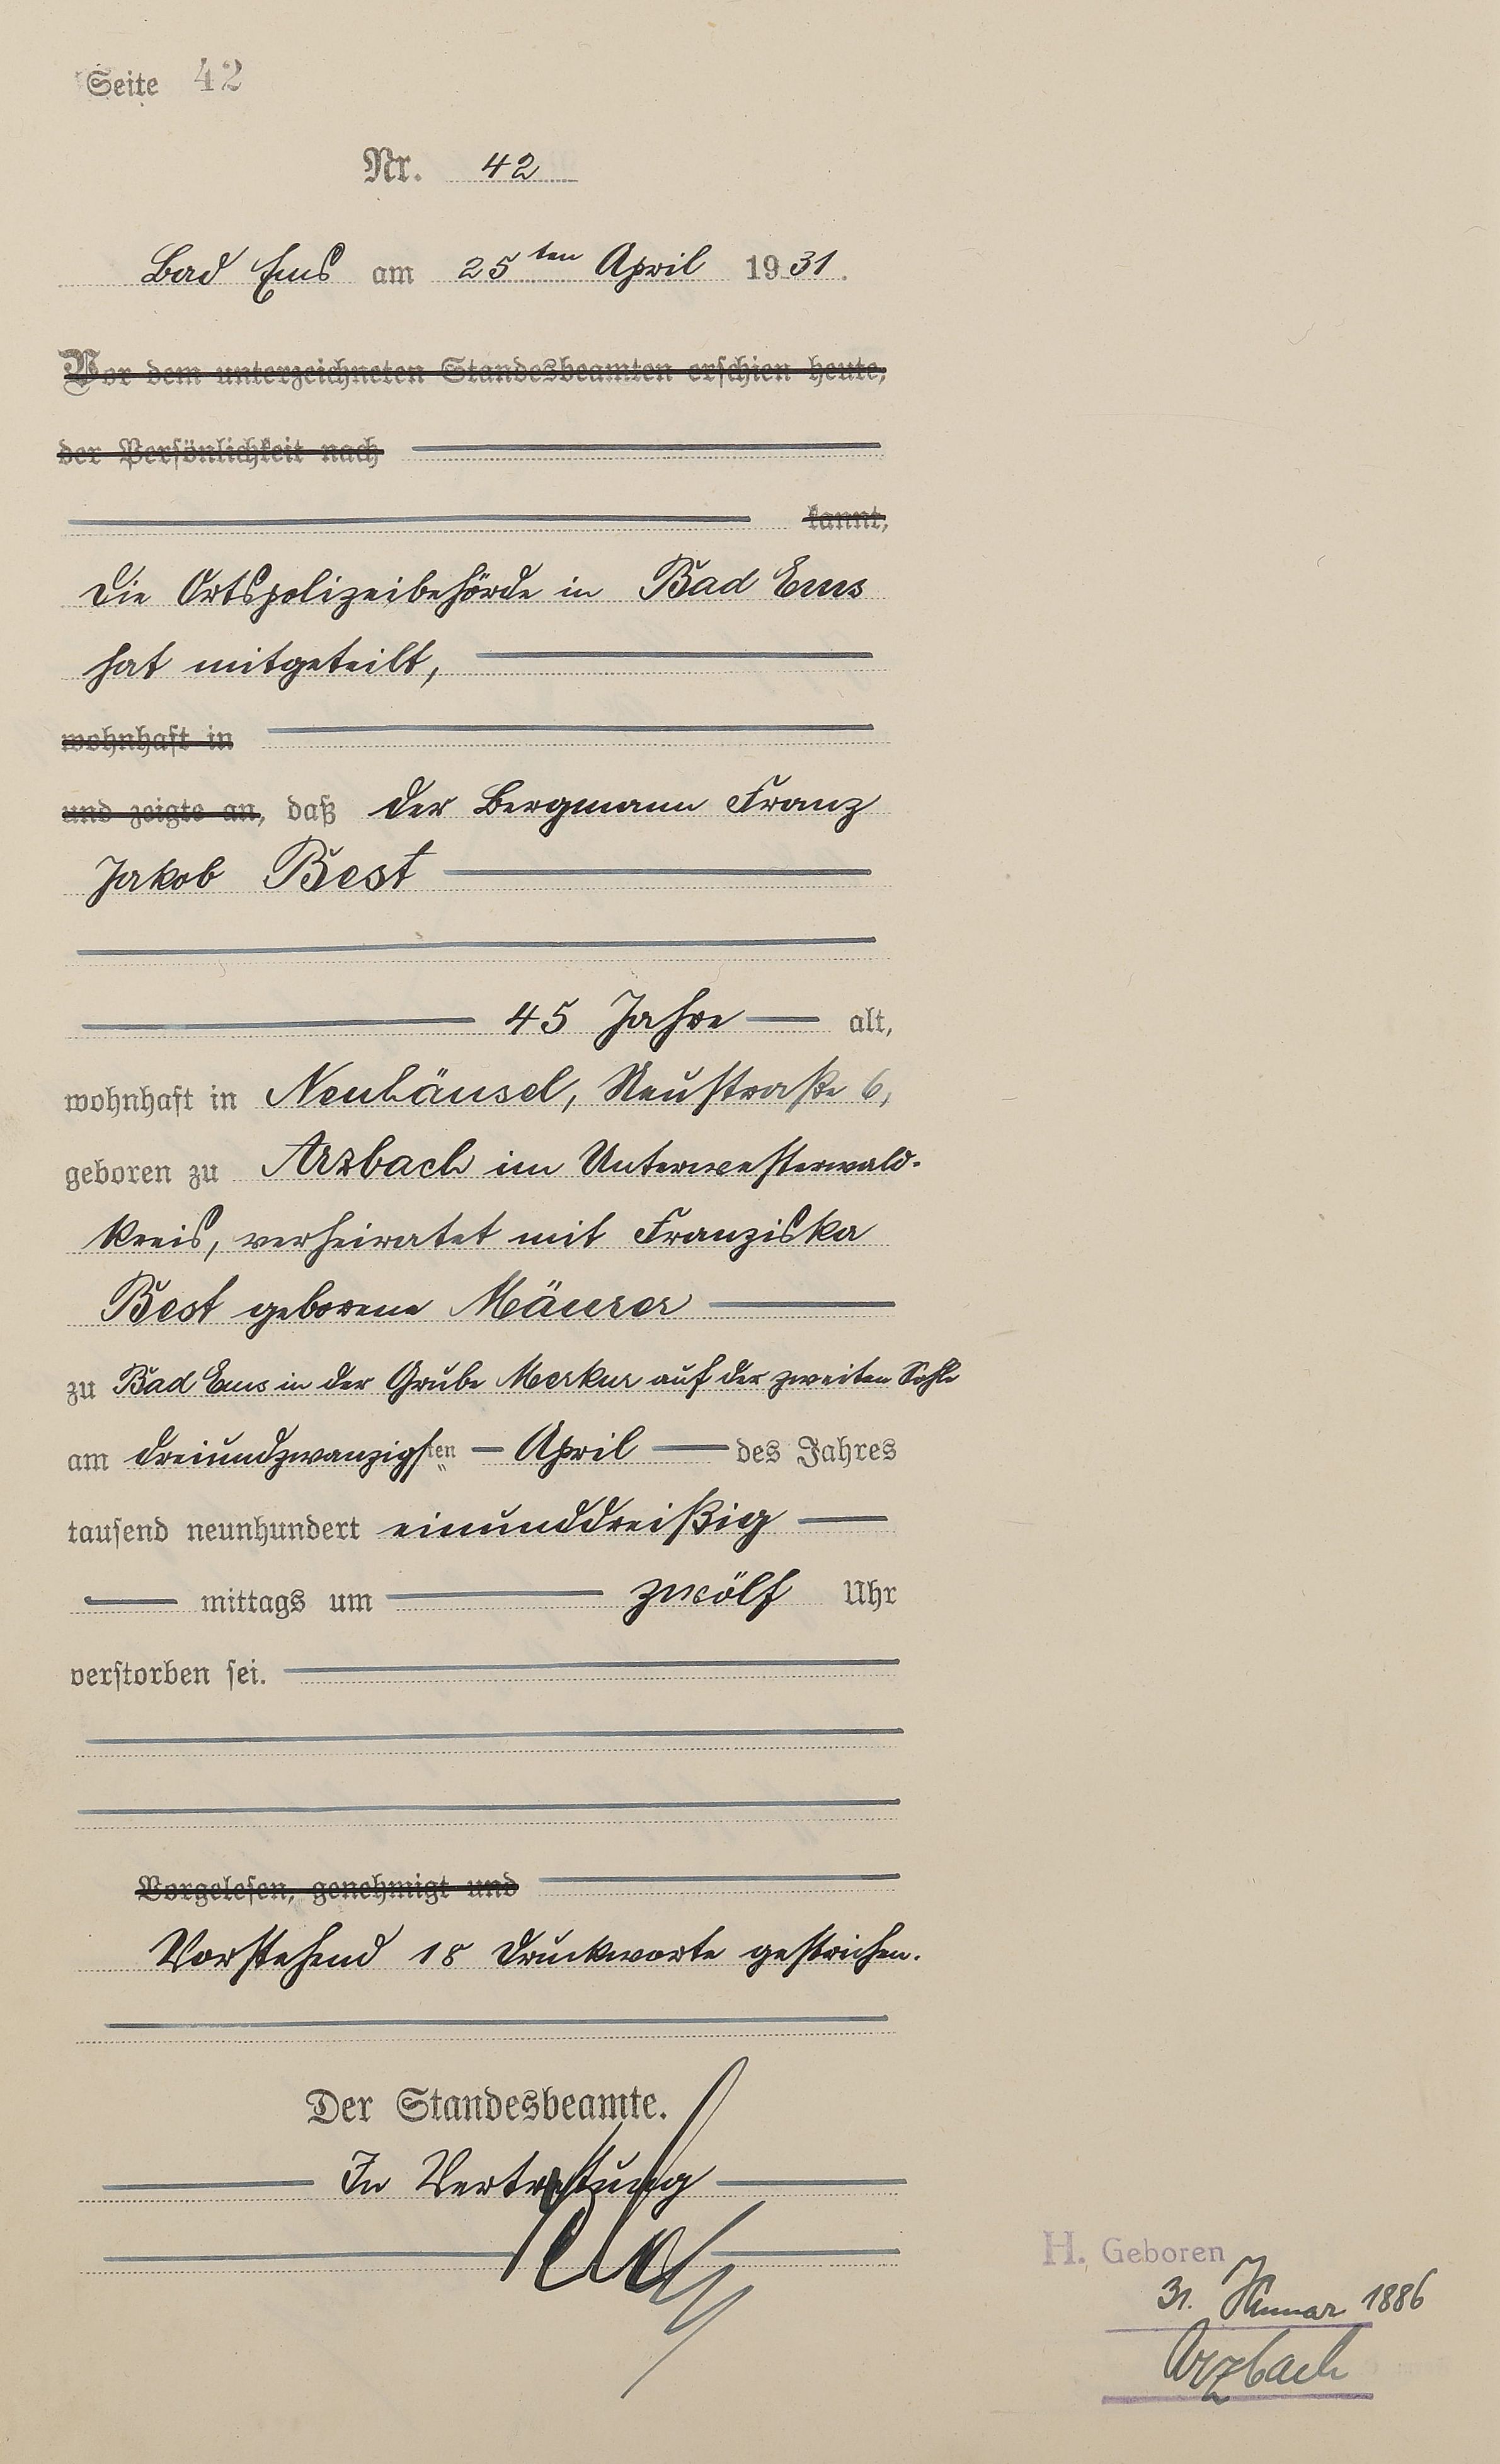 Seite 42
Nr. 42
Bad Ems am 25ten April 1931.
Vor dem unterzeichneten Standesbeamten erschien heute,
der Persönlichkeit nach
kannt,
die Ortspolizeibehörde in Bad Ems
hat mitgeteilt,
wohnhaft in
und zeigte an, daß der Bergmann Franz
Jakob Best
45 Jahre alt,
wohnhaft in Neuhäusel, Neustraße 6,
geboren zu Arzbach im Unterwesterwald-
kreis, verheiratet mit Franziska
Best geborene Mäurer
zu Bad Ems in der Grube Merkur auf der zweiten Sohle
am dreiundzwanzigsten April des Jahres
tausend neunhundert einunddreißig
mittags um zwölf Uhr
verstorben sei.
Vorgelesen, genehmigt und
Vorstehend 18 Druckworte gestrichen.
Der Standesbeamte.
In Vertretung
H. Geboren
31. Januar 1886
Arzbach